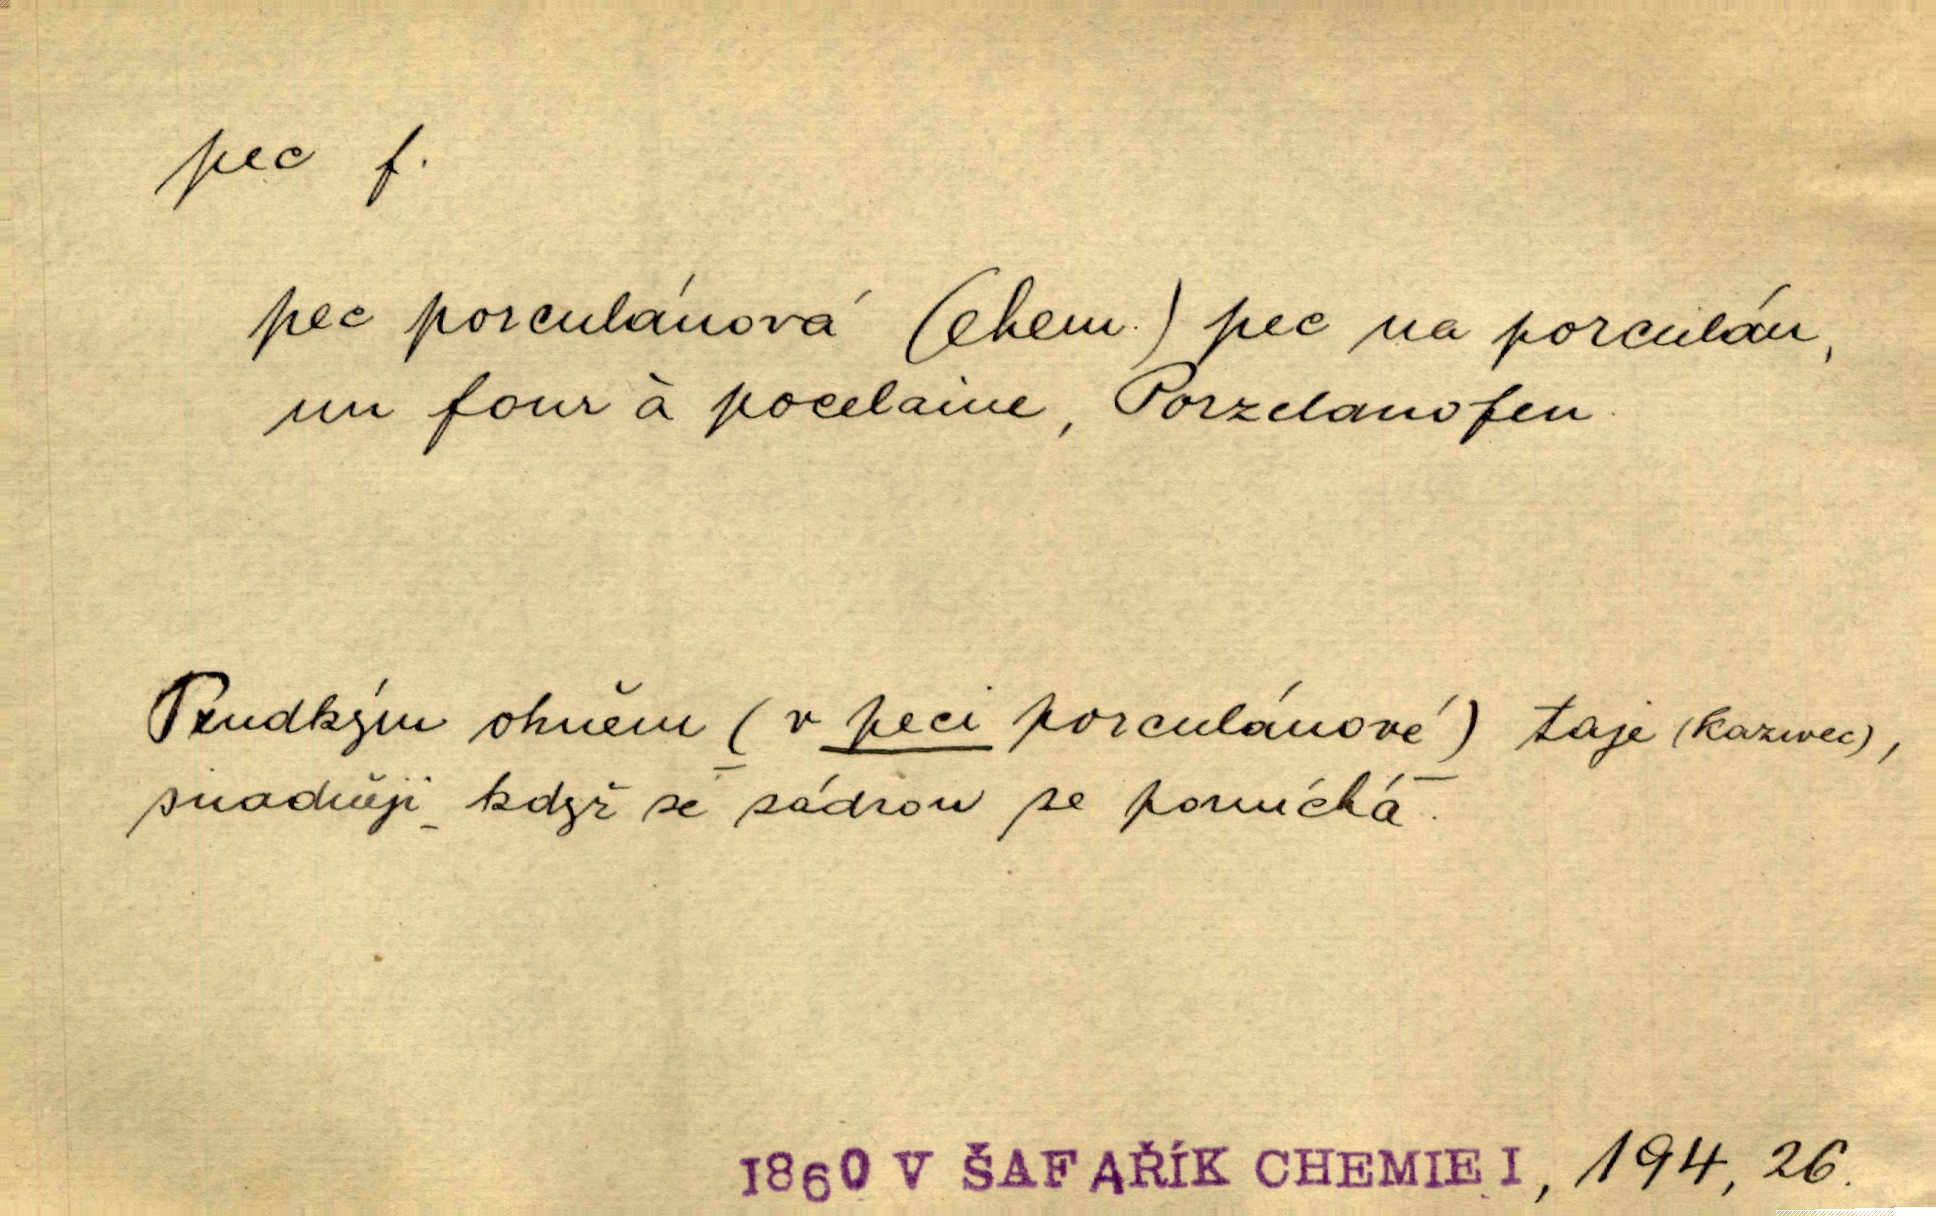 pec f.
pec porculánová (chem.) pec na porculán,
un four à pocelaine, Porzelanofen
Prudkým ohněm (v peci porculánové) taje (kazivec),
snadněji když se sádrou se pomíchá.
1860 V ŠAFAŘÍK CHEMIE I, 194, 26.